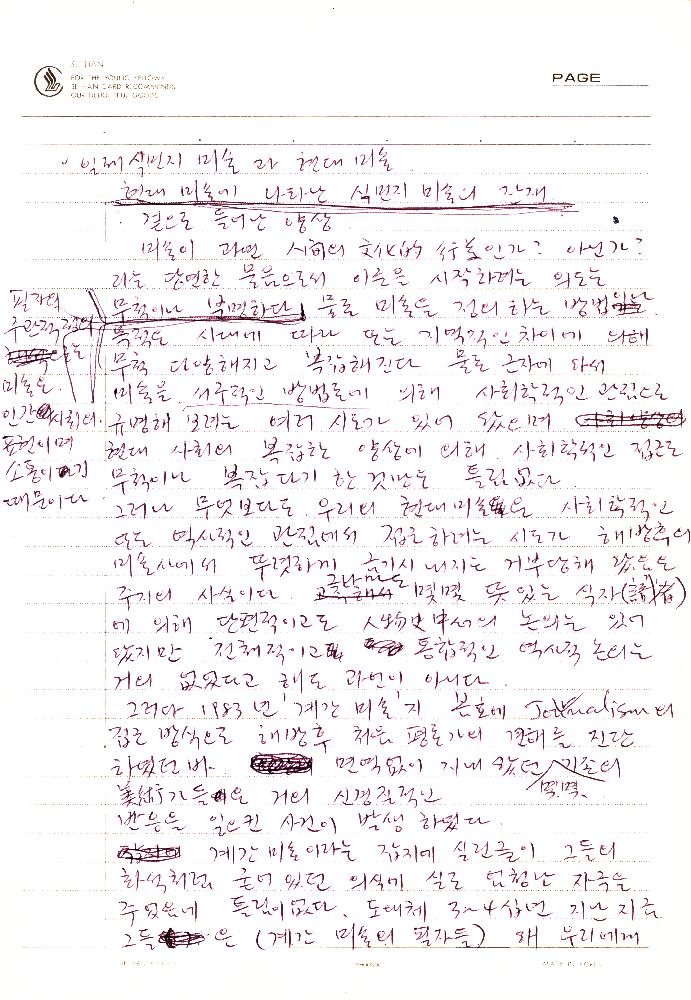 SE HAN
FOR THE YOUNG FELLOWS
SE HAN CARD RECOMMENDS
OUR DELIGHTFUL GOODS
PAGE
일제식민지 미술과 현대 미술
현대 미술에 나타난 식민지 미술의 잔재
겉으로 들어난 양상
미술이 과연 사회의 文化的 行为인가? 아닌가?
라는 당연한 물음으로서 이 글을 시작하려는 의도는
무척이나 분명하다. 물론 미술을 정의 하는 방법
목적은 시대에 따라 또는 지역적인 차이에 의해
무척 다양해지고 복잡해진다 물론 근자에 와서
미술을 서구적인 방법론에 의해 사회학적인 관점으로
규명해 보려는 여러 시도가 있어 왔으며
현대 사회의 복잡한 양상에 의해 사회학적인 접근도
무척이나 복잡다기 한것만은 틀림없다
그러나 무엇보다도 우리의 현대미술을 사회학적인
또는 역사적인 관점에서 접근하려는 시도가 해방후의
미술사에서 뚜렷하게 금기시 내지는 거부당해 왔음은
주지의 사실이다. 그나마도 몇몇 뜻있는 식자(識者)
에 의해 단편적이고도 人物史中心의 논의는 있어
왔지만 전체적이고 통합적인 역사적 논의는
거의 없었다고 해도 과언이 아니다.
그러다 1983년 '계간 미술'지 봄호에 Journalism의
접근방식으로 해방후 처음 평론가의 견해를 진단
하였던 바 면역없이 지내 왔던 기존의
몇몇
美術가들은 거의 신경질적인
반응을 일으킨 사건이 발생 하였다.
계간 미술이라는 잡지에 실린글이 그들의
화석처럼 굳어 있던 의식에 실로 엄청난 자극을
주었음에 틀림이없다. 도대체 3~4십년 지난 지금
그들 은 (계간 미술의 필자들) 왜 우리에게
필자의
주관적 견의
는
미술은
인간 사회의
표현이며
소통이기
때문이다
MADE IN KOREA